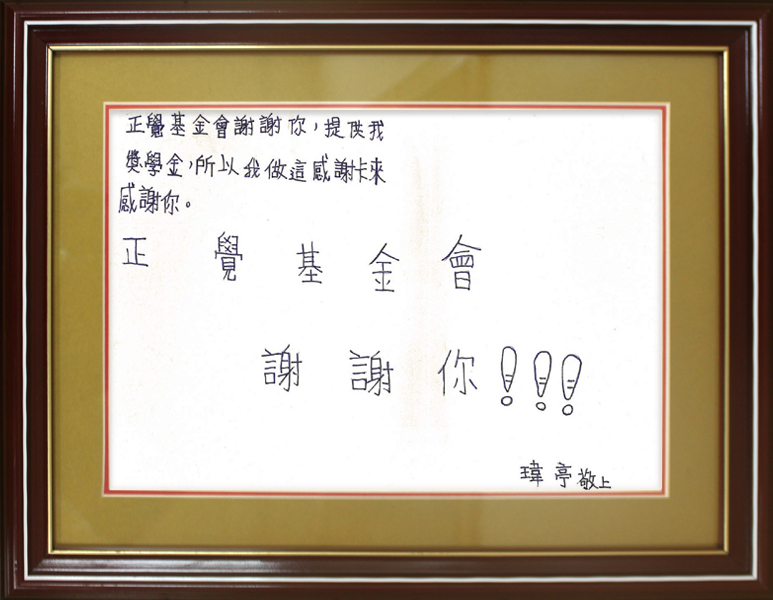 正覺基金會謝謝你，提供我
獎學金，所以我做這感謝卡來
感謝你。
正覺基金會
謝謝你！！！
瑋亭敬上